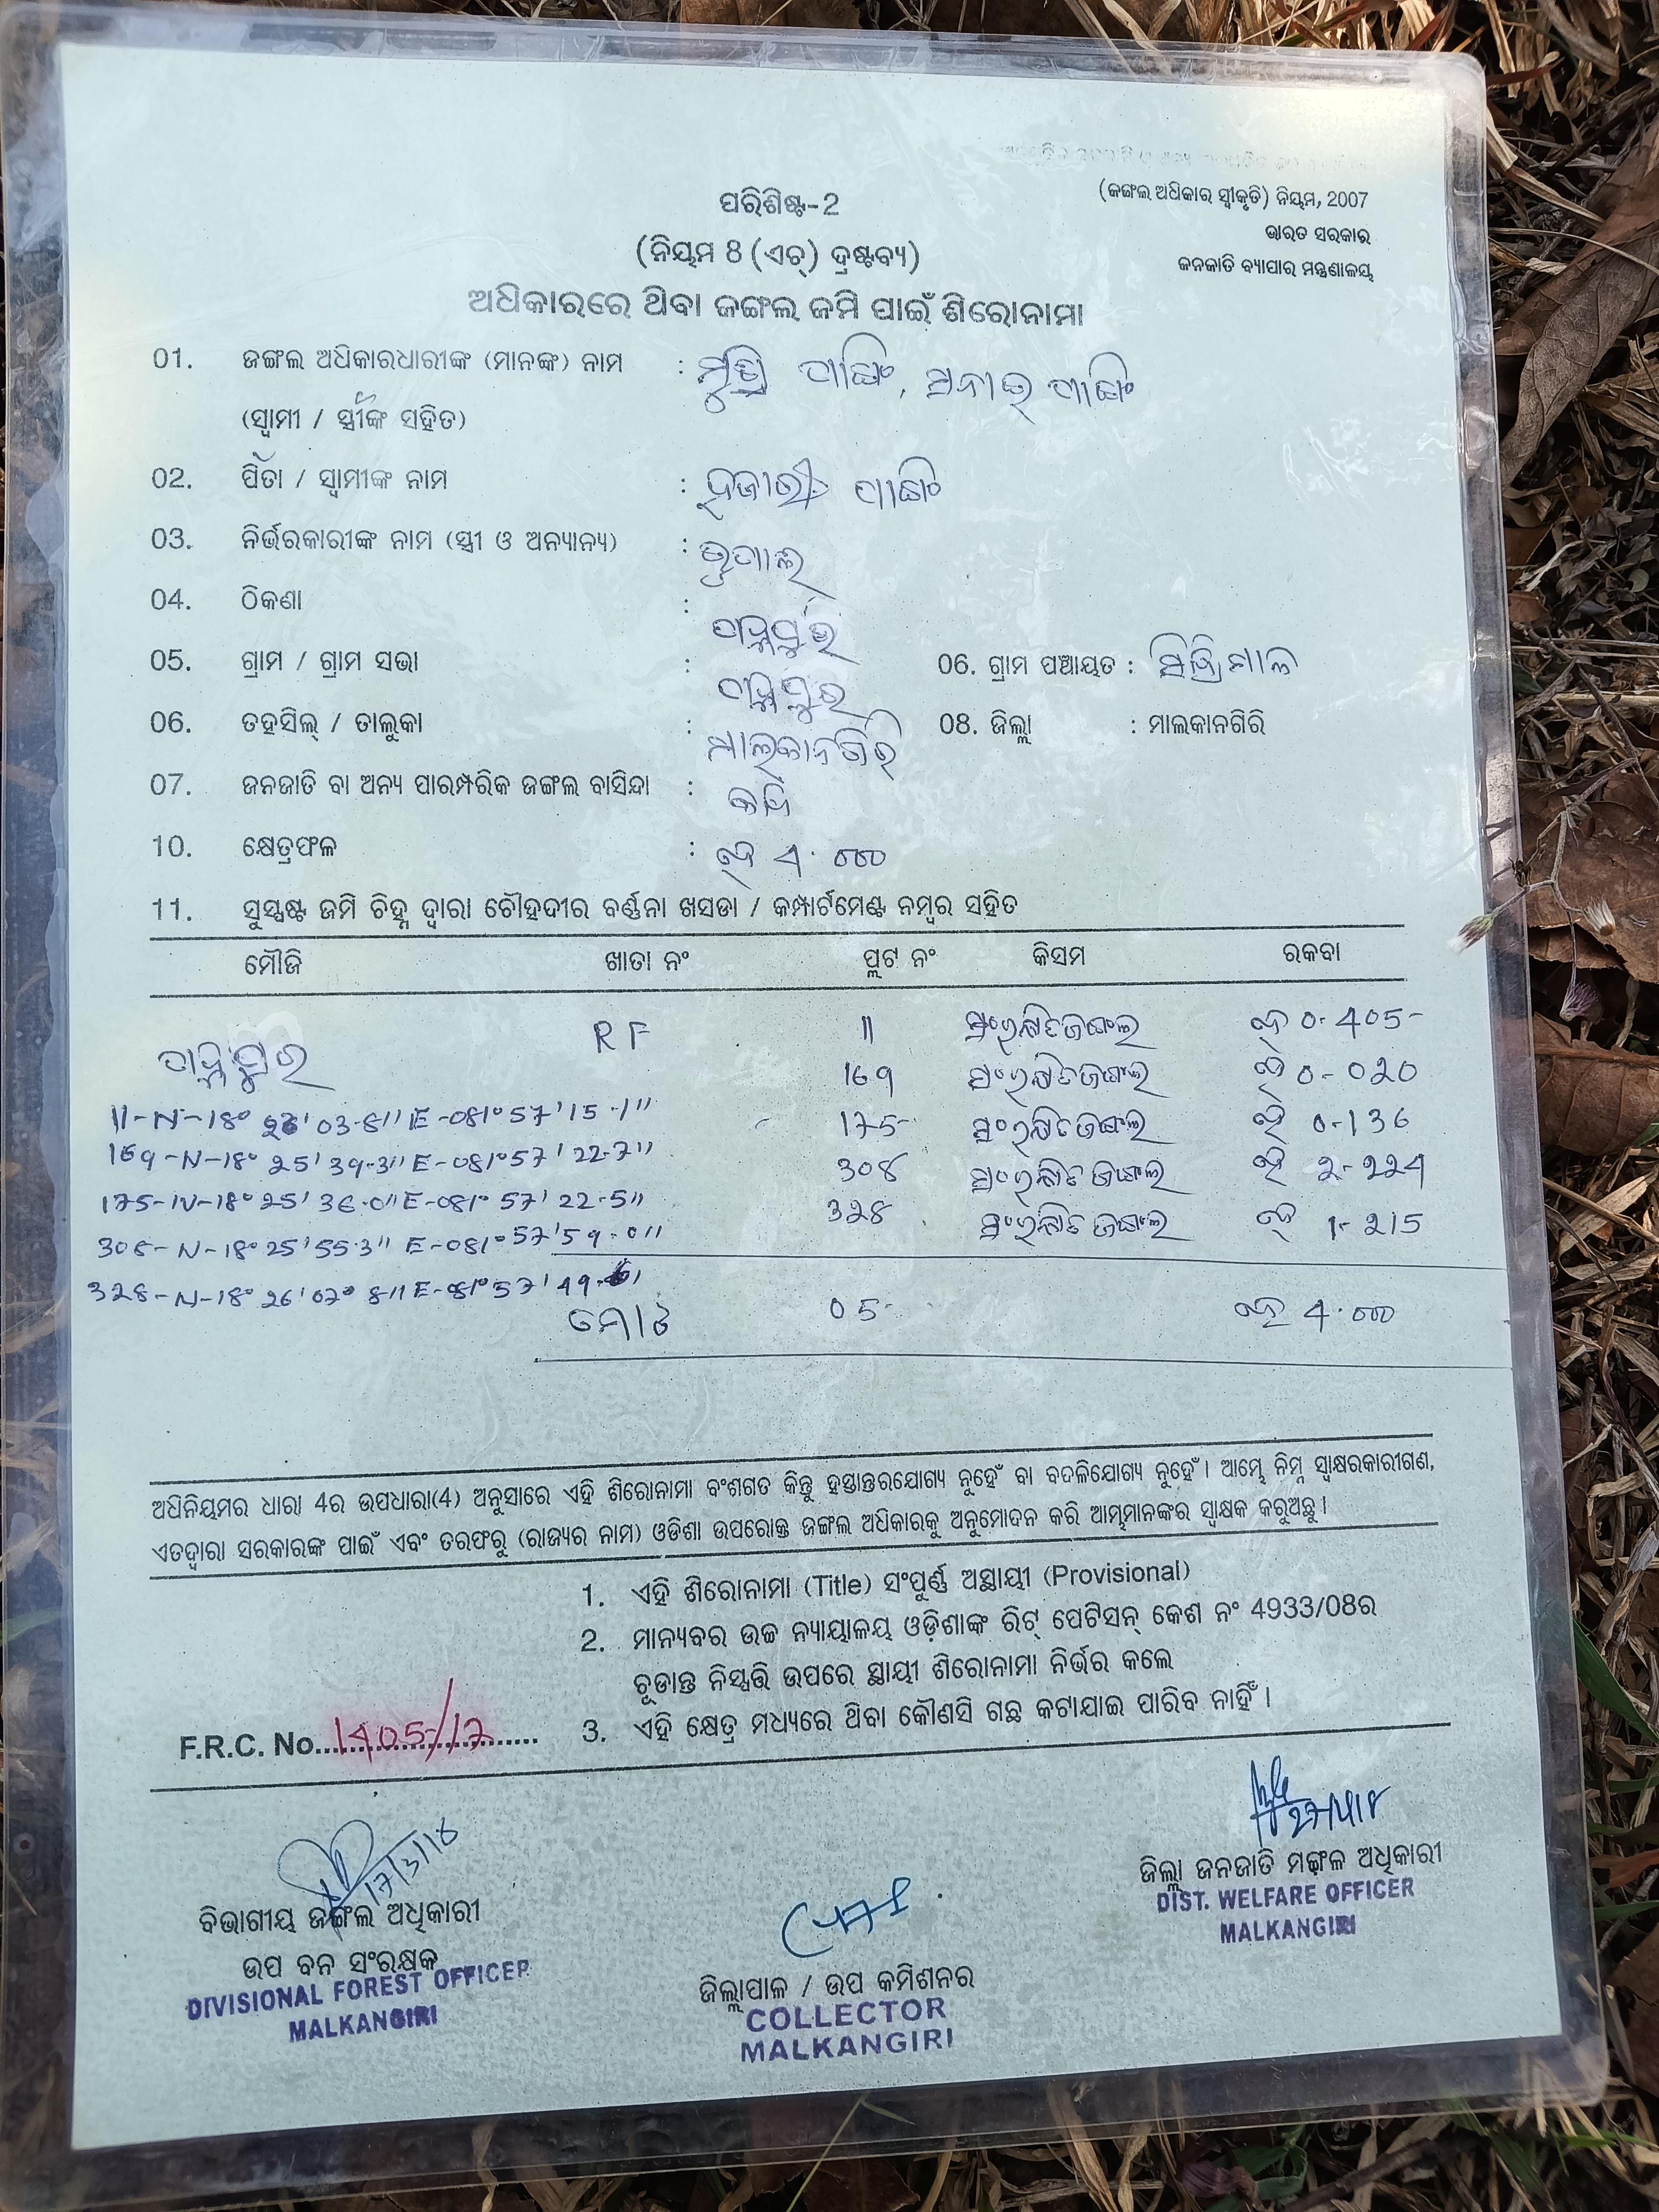 (ଜଙ୍ଗଲ ଅଧିକାର ସ୍ୱୀକୃତି) ନିୟମ, 2007
ପରିଶିଷ୍ଟ-2
ଭାରତ ସରକାର
(ନିୟମ 8 (ଏଚ୍) ଦ୍ରଷ୍ଟବ୍ୟ)
ଜନଜାତି ବ୍ୟାପାର ମନ୍ତ୍ରଣାଳୟ
ଅଧିକାରରେ ଥିବା ଜଙ୍ଗଲ ଜମି ପାଇଁ ଶିରୋନାମା
01. ଜଙ୍ଗଲ ଅଧିକାରଧାରୀଙ୍କ (ମାନଙ୍କ) ନାମ :
(ସ୍ୱାମୀ / ସ୍ତ୍ରୀଙ୍କ ସହିତ)
02. ପିତା / ସ୍ୱାମୀଙ୍କ ନାମ :
03. ନିର୍ଭରକାରୀଙ୍କ ନାମ (ସ୍ତ୍ରୀ ଓ ଅନ୍ୟାନ୍ୟ) :
04. ଠିକଣା :
05. ଗ୍ରାମ / ଗ୍ରାମ ସଭା : 06. ଗ୍ରାମ ପଞ୍ଚାୟତ :
06. ତହସିଲ୍ / ତାଲୁକା : ମାଲକାନଗିରି 08. ଜିଲ୍ଲା : ମାଲକାନଗିରି
07. ଜନଜାତି ବା ଅନ୍ୟ ପାରମ୍ପରିକ ଜଙ୍ଗଲ ବାସିନ୍ଦା :
10. କ୍ଷେତ୍ରଫଳ : ହେ 4.000
11. ସୁସ୍ପଷ୍ଟ ଜମି ଚିହ୍ନ ଦ୍ୱାରା ଚୌହଦୀର ବର୍ଣ୍ଣନା ଖସଡା / କମ୍ପାର୍ଟମେଣ୍ଟ ନମ୍ବର ସହିତ
ମୌଜି ଖାତା ନଂ ପ୍ଲଟ ନଂ କିସମ ରକବା
RF 11 ସଂରକ୍ଷିତ ଜଙ୍ଗଲ ହେ 0.405
169 ସଂରକ୍ଷିତ ଜଙ୍ଗଲ ହେ 0.020
11-N-18° 26' 03.8" E-081° 57' 15.1"
175 ସଂରକ୍ଷିତ ଜଙ୍ଗଲ ହେ 0.136
169-N-18° 25' 39.3" E-081° 57' 22.7"
308 ସଂରକ୍ଷିତ ଜଙ୍ଗଲ ହେ 2.224
175-N-18° 25' 36.0" E-081° 57' 22.5"
328 ସଂରକ୍ଷିତ ଜଙ୍ଗଲ ହେ 1.215
308-N-18° 25' 55.3" E-081° 57' 59.0"
328-N-18° 26' 07.8" E-081° 57' 49.
ମୋଟ 05 ହେ 4.000
ଅଧିନିୟମର ଧାରା 4ର ଉପଧାରା(4) ଅନୁସାରେ ଏହି ଶିରୋନାମା ବଂଶଗତ କିନ୍ତୁ ହସ୍ତାନ୍ତରଯୋଗ୍ୟ ନୁହେଁ ବା ବଦଳିଯୋଗ୍ୟ ନୁହେଁ । ଆମ୍ଭେ ନିମ୍ନ ସ୍ୱାକ୍ଷରକାରୀଗଣ,
ଏତଦ୍ୱାରା ସରକାରଙ୍କ ପାଇଁ ଏବଂ ତରଫରୁ (ରାଜ୍ୟର ନାମ) ଓଡିଶା ଉପରୋକ୍ତ ଜଙ୍ଗଲ ଅଧିକାରକୁ ଅନୁମୋଦନ କରି ଆମ୍ଭମାନଙ୍କର ସ୍ୱାକ୍ଷକ କରୁଅଛୁ ।
1. ଏହି ଶିରୋନାମା (Title) ସଂପୂର୍ଣ୍ଣ ଅସ୍ଥାୟୀ (Provisional)
2. ମାନ୍ୟବର ଉଚ୍ଚ ନ୍ୟାୟାଳୟ ଓଡ଼ିଶାଙ୍କ ରିଟ୍ ପେଟିସନ୍ କେଶ ନଂ 4933/08ର
ଚୂଡାନ୍ତ ନିସ୍ପତ୍ତି ଉପରେ ସ୍ଥାୟୀ ଶିରୋନାମା ନିର୍ଭର କଲେ
3. ଏହି କ୍ଷେତ୍ର ମଧ୍ୟରେ ଥିବା କୌଣସି ଗଛ କଟାଯାଇ ପାରିବ ନାହିଁ ।
F.R.C. No. 1405/17
ଜିଲ୍ଲା ଜନଜାତି ମଙ୍ଗଳ ଅଧିକାରୀ
DIST. WELFARE OFFICER
MALKANGIRI
ବିଭାଗୀୟ ଜଙ୍ଗଲ ଅଧିକାରୀ
ଉପ ବନ ସଂରକ୍ଷକ
DIVISIONAL FOREST OFFICER
MALKANGIRI
ଜିଲ୍ଲାପାଳ / ଉପ କମିଶନର
COLLECTOR
MALKANGIRI